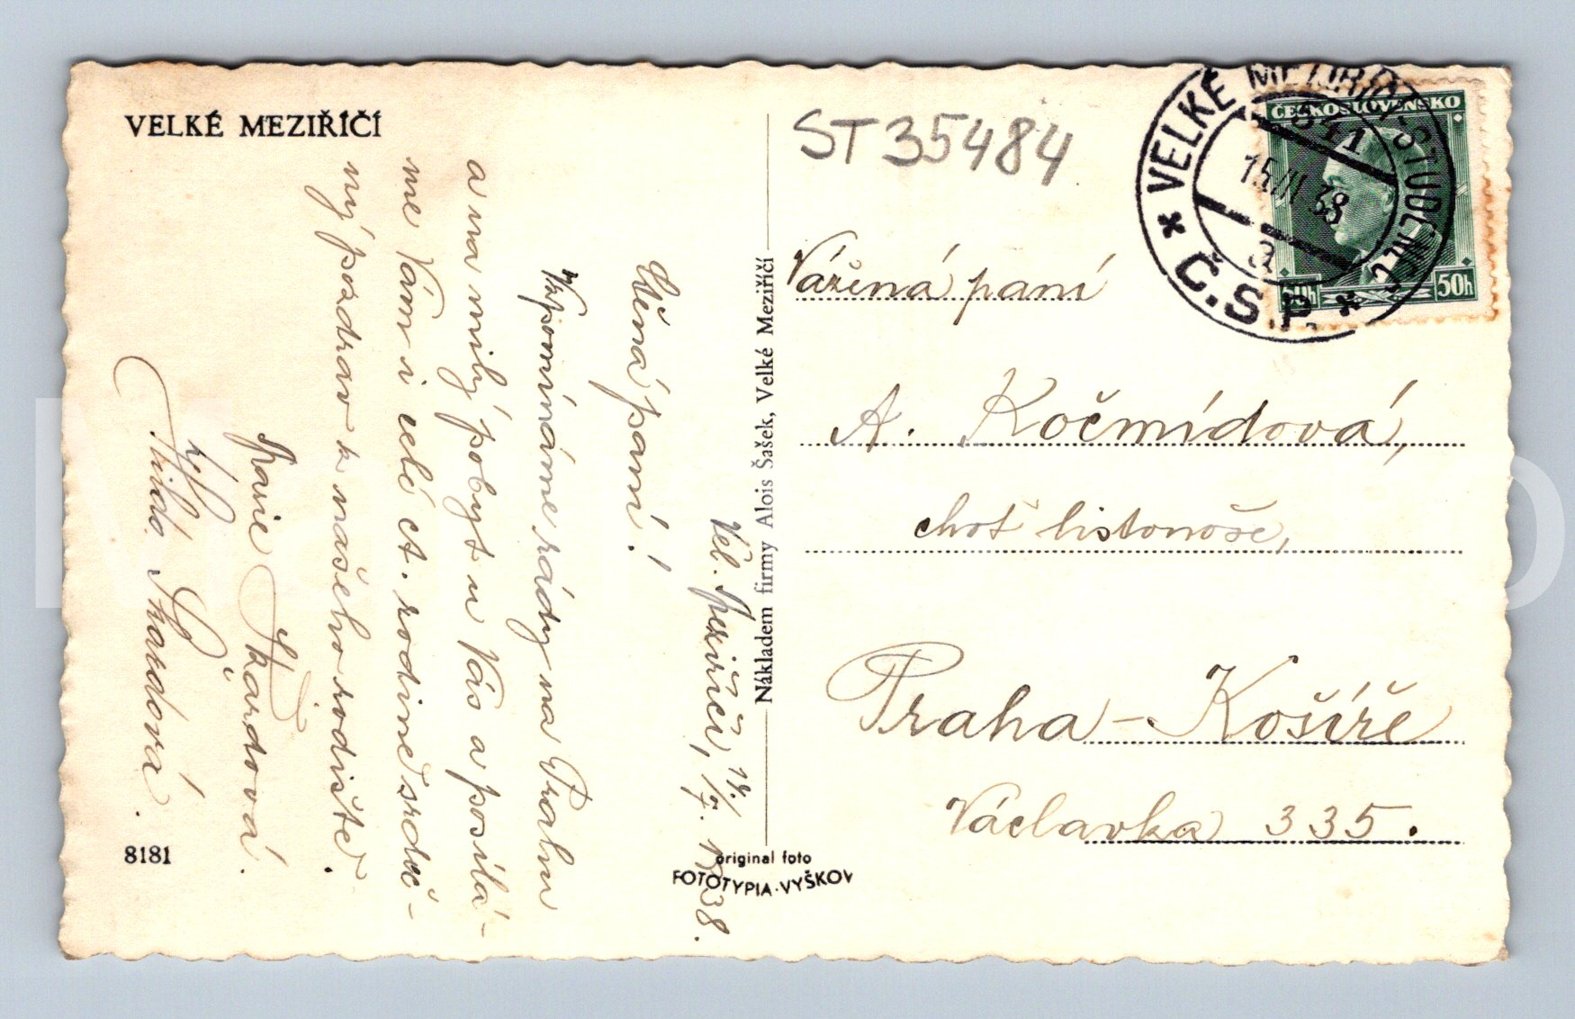 VELKÉ MEZIŘÍČÍ
Vel. Meziříčí, 14./7. 1938.
Ctěná paní!
Vzpomínáme rády na Prahu
a na milý pobyt u Vás a posílá-
me Vám i celé ct. rodině srdeč-
ný pozdrav z našeho rodiště.
Marie Škardová.
Škardová.
8181
Nákladem firmy Alois Šašek, Velké Meziříčí
original foto
FOTOTYPIA-VYŠKOV
ST35484
VELKÉ MEZIŘÍČÍ-STUDENEC
541
38
a
* Č.S.P. *
ČESKOSLOVENSKO
50h 50h
Vážená paní
A. Kočmídová,
choť listonoše,
Praha-Košíře
Václavka 335.